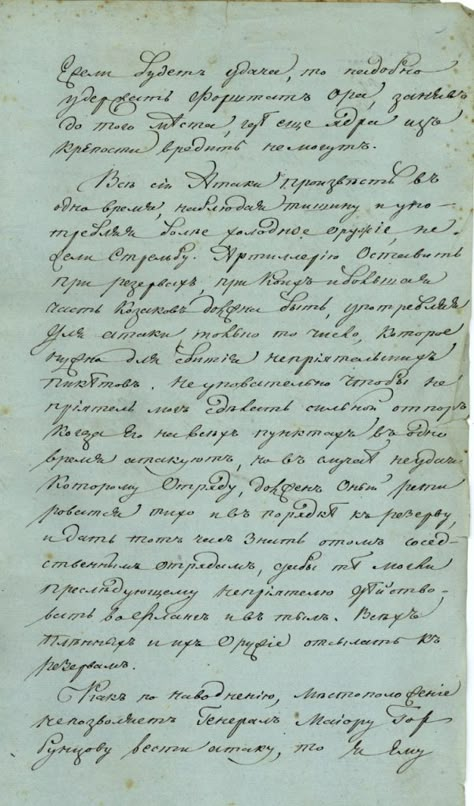 Ежели будетъ удача, то надобно
удержать Форштат Ора, занявъ
до того мѣста, гдѣ еще ядра изъ
крѣпости вредить немогутъ.
Всѣ сіи Атаки произвѣсть въ
одно время, наблюдая тишину и упо-
требляя болѣе холодное оружіе, не-
жели Стрельбу. Артиллерію Оставить
при резервахъ, при Коихъ и большая
часть Козаковъ должна быть, употребляя
для атаки, только то число, которое
нужно для сбитія непріятельскихъ
пикѣтовъ. Неуповательно чтобы не
пріятель могъ сдѣлать сильной отпоръ
когда его на всѣхъ пунктахъ въ одно
время атакуютъ, но въ случаѣ неудачи
которому Отряду, долженъ Оный рети
роватся тихо и въ порядкѣ къ резерву,
и дать тотъ часъ знать отомъ сосед-
ственнымъ отрядамъ, дабы тѣ могли
преслѣдующему непріятелю дѣйство-
вать во Флангъ и въ тылъ. Всѣхъ
плѣнныхъ и ихъ Оружіе отсылать къ
резервамъ.
Какъ по наводненію, мѣстоположеніе
непозволяетъ Генералъ Маіору Гор
бунцову вести атаку, то я ему